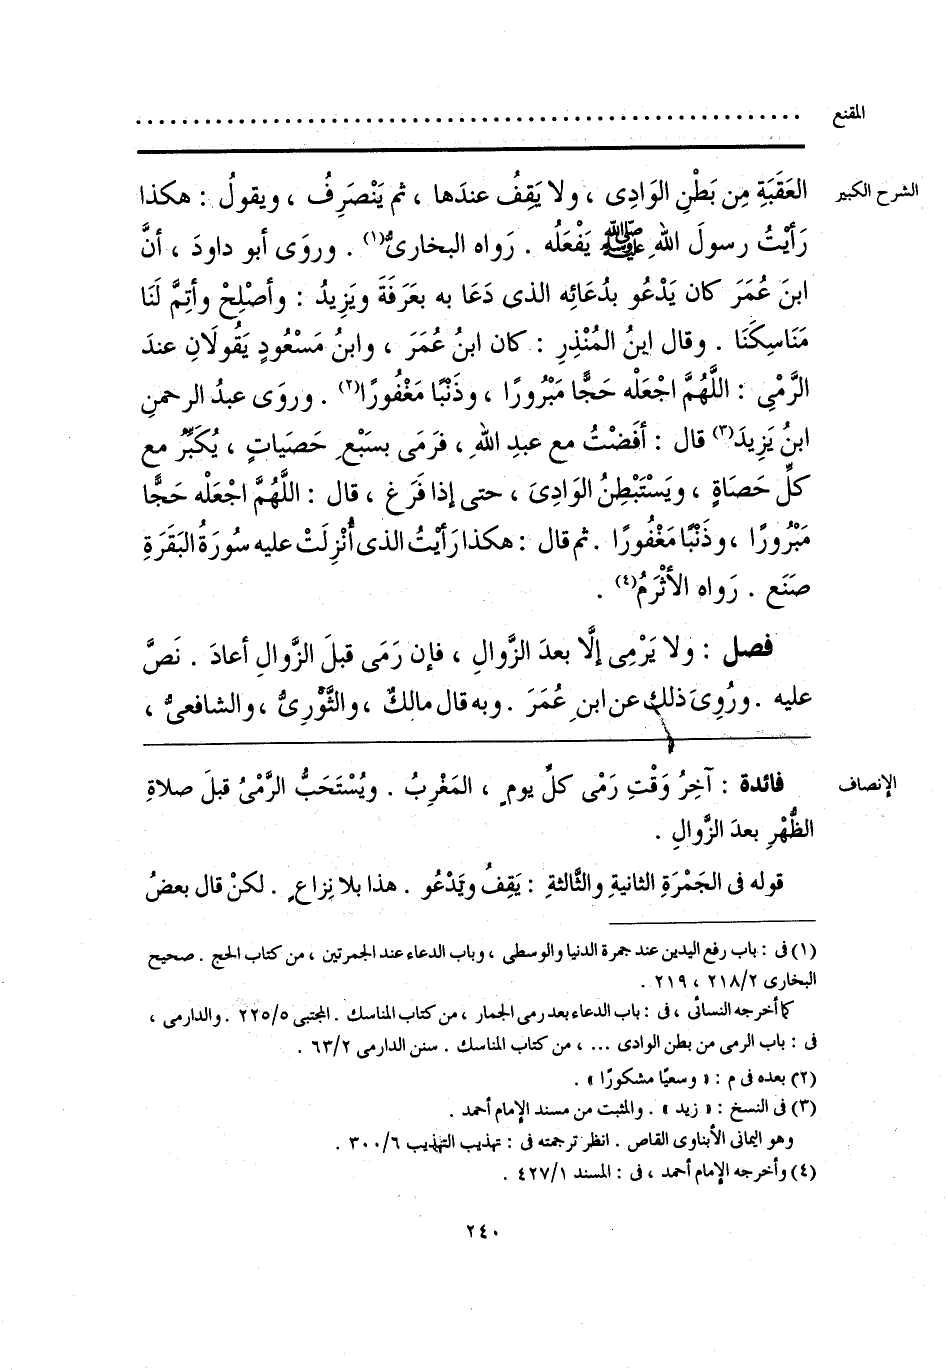 المقنع ................................................................
الشرح الكبير العَقَبَةِ مِن بَطْنِ الوَادِى ، ولا يَقِفُ عندَها ، ثم يَنْصَرِفُ ، ويقولُ : هكذا
رَأيْتُ رسولَ اللهِ ﷺ يَفْعَلُه . رَواه البخارىُّ(١) . وروَى أبو داودَ ، أنَّ
ابنَ عُمَرَ كان يَدْعُو بدُعَائِه الذى دَعَا به بعَرَفَةَ ويَزِيدُ : وأصْلِحْ وأتِمَّ لَنَا
مَنَاسِكَنَا . وقال ابنُ المُنْذِرِ : كان ابنُ عُمَرَ ، وابنُ مَسْعُودٍ يَقُولَانِ عندَ
الرَّمْىِ : اللَّهُمَّ اجْعَلْه حَجًّا مَبْرُورًا ، وذَنْبًا مَغْفُورًا(٢) . وروَى عبدُ الرحمنِ
ابنُ يَزِيدَ(٣) قال : أفَضْتُ مع عبدِ اللهِ ، فرَمَى بسَبْعِ حَصَياتٍ ، يُكَبِّرُ مع
كلِّ حَصَاةٍ ، ويَسْتَبْطِنُ الوَادِىَ ، حتى إذا فَرَغ ، قال : اللَّهُمَّ اجْعَلْه حَجًّا
مَبْرُورًا ، وذَنْبًا مَغْفُورًا . ثم قال : هكذا رَأيْتُ الذى أُنْزِلَتْ عليه سُورَةُ البَقَرَةِ
صَنَع . رَواه الأثْرَمُ(٤) .
فصل : ولا يَرْمِى إلَّا بعدَ الزَّوالِ ، فإن رَمَى قبلَ الزَّوالِ أعادَ . نَصَّ
عليه . ورُوِىَ ذلك عن ابنِ عُمَرَ . وبه قال مالكٌ ، والثَّوْرِىُّ ، والشافعىُّ ،
الإنصاف فائدة : آخِرُ وَقْتِ رَمْى كلِّ يومٍ ، المَغْرِبُ . ويُسْتَحَبُّ الرَّمْىُ قبلَ صلاةِ
الظُّهْرِ بعدَ الزَّوالِ .
قوله فى الجَمْرَةِ الثانيةِ والثَّالثةِ : يَقِفُ ويَدْعُو . هذا بلا نِزاعٍ . لكنْ قال بعضُ
(١) فى : باب رفع اليدين عند جمرة الدنيا والوسطى ، وباب الدعاء عند الجمرتين ، من كتاب الحج . صحيح
البخارى ٢١٨/٢ ، ٢١٩ .
كما أخرجه النسائى ، فى : باب الدعاء بعد رمى الجمار ، من كتاب المناسك . المجتبى ٢٢٥/٥ . والدارمى ،
فى : باب الرمى من بطن الوادى ... ، من كتاب المناسك . سنن الدارمى ٦٣/٢ .
(٢) بعده فى م : « وسعيًا مشكورًا » .
(٣) فى النسخ : « زيد » . والمثبت من مسند الإمام أحمد .
وهو اليمانى الأبناوى القاص . انظر ترجمته فى : تهذيب التهذيب ٣٠٠/٦ .
(٤) وأخرجه الإمام أحمد ، فى : المسند ٤٢٧/١ .
٢٤٠